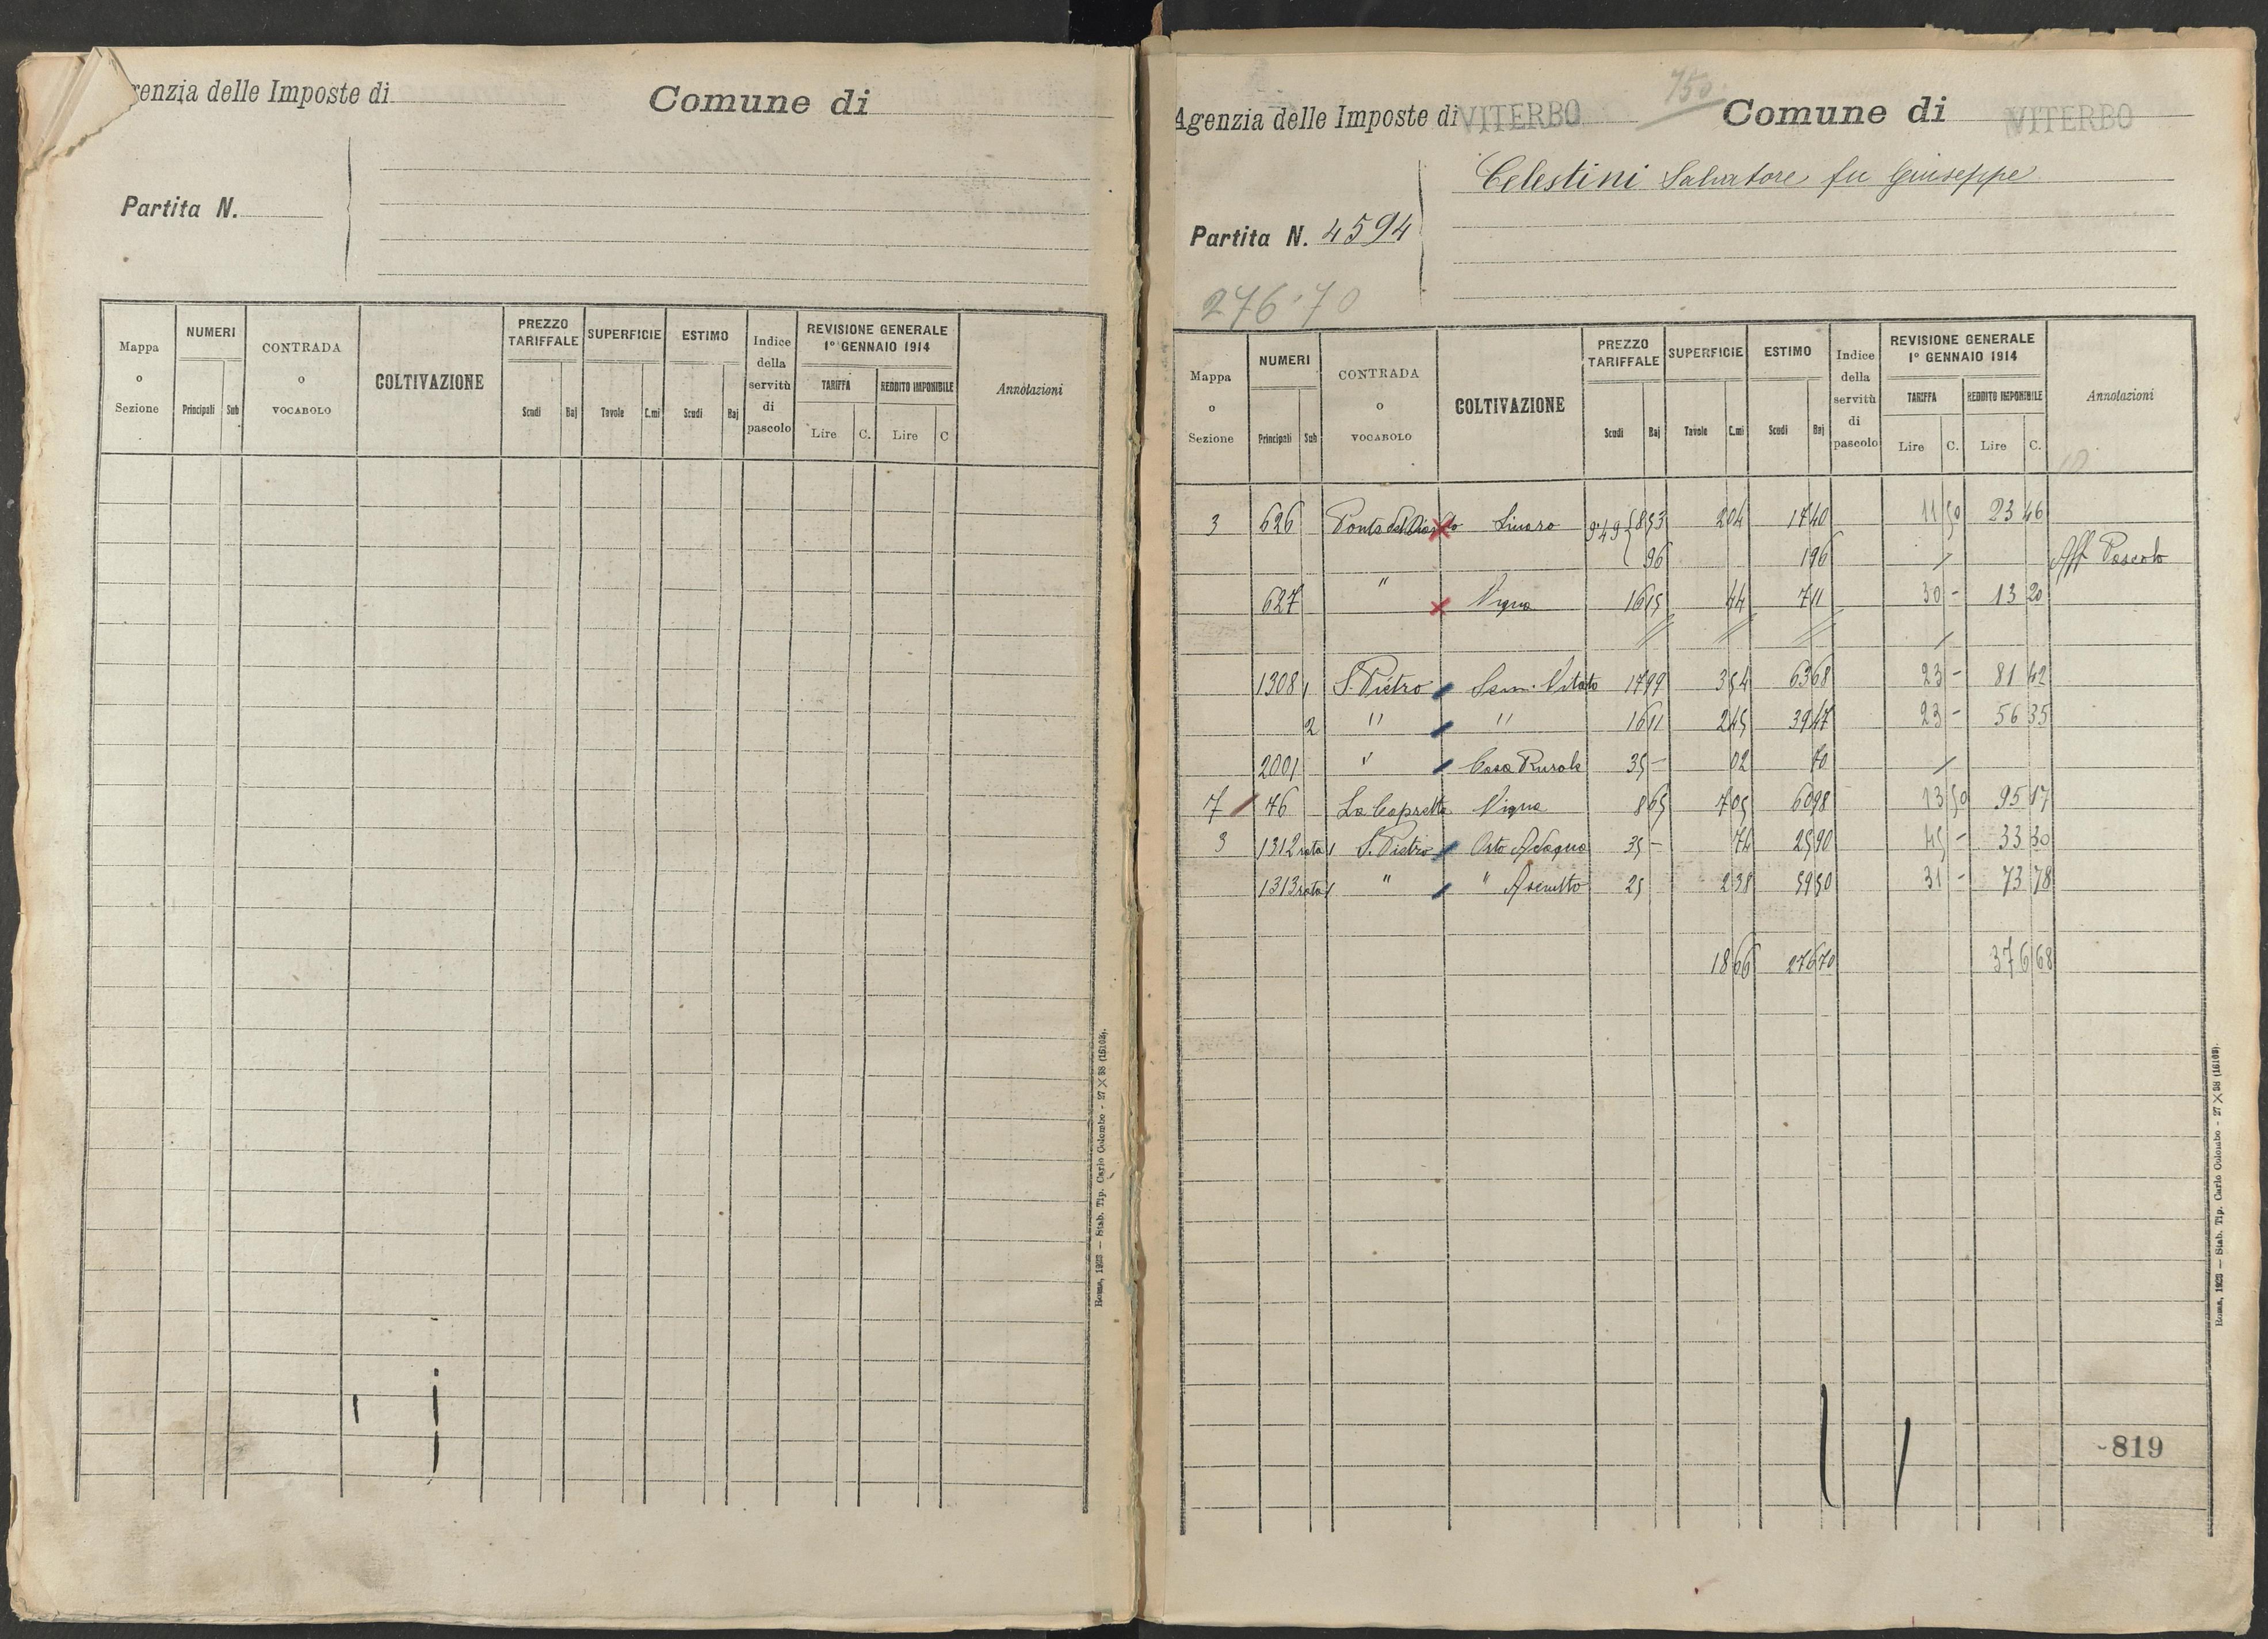 genzia delle Imposte di Comune di
Partita N.
Mappa o Sezione NUMERI Principali Sub CONTRADA o VOCABOLO COLTIVAZIONE PREZZO TARIFFALE Scudi Baj SUPERFICIE Tavole C.mi ESTIMO Scudi Baj Indice della servitù di pascolo REVISIONE GENERALE 1° GENNAIO 1914 TARIFFA Lire C. REDDITO IMPONIBILE Lire C Annotazioni
Roma, 1923 — Stab. Tip. Carlo Colombo - 27 X 38 (15103).
750
Agenzia delle Imposte di VITERBO Comune di VITERBO
Celestini Salvatore fu Giuseppe
Partita N. 4594
276.70
Mappa o Sezione NUMERI Principali Sub CONTRADA o VOCABOLO COLTIVAZIONE PREZZO TARIFFALE Scudi Baj SUPERFICIE Tavole C.mi ESTIMO Scudi Baj Indice della servitù di pascolo REVISIONE GENERALE 1° GENNAIO 1914 TARIFFA Lire C. REDDITO IMPONIBILE Lire C. Annotazioni
3 626 Ponte del 9'49 { 8 53 2 04 17 40 11 50 23 46
96 1 96 / Aff Pascolo
627 " Vigna 16 15 44 7 11 30 - 13 20
1308 1 S. Pietro Sem. Vitato 17 99 3 54 63 68 23 - 81 42
2 " " 16 11 2 45 39 47 23 - 56 35
2001 " Casa Rurale 35 - 02 70 /
7 46 La Capretta Vigna 8 65 7 05 60 98 13 50 95 17
3 1312 rata 1 S. Pietro Orto Adaquo 35 - 74 25 90 45 - 33 30
1313 rata 1 " " Asciutto 25 2 38 59 50 31 - 73 78
18 66 276 70 376 68
819
Roma, 1923 — Stab. Tip. Carlo Colombo - 27 X 38 (15103).